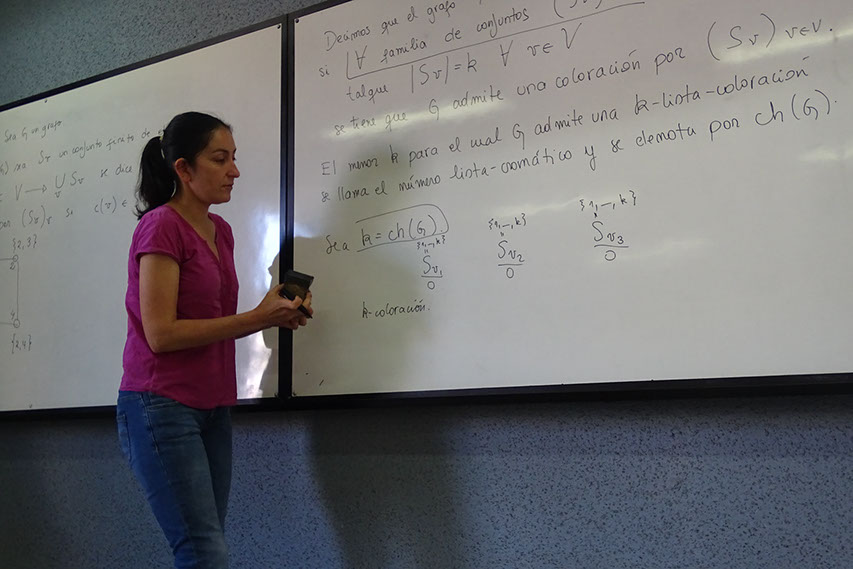 Sea G un grafo
sea Sv un conjunto finito de
V → ⋃ Sv se dice
por (Sv)v si c(v) ∈
{2,3}
{2,4}
Decimos que el grafo
si ∀ familia de conjuntos (Sv)
tal que |Sv| = k ∀ v∈V
se tiene que G admite una coloración por (Sv) v∈V.
El menor k para el cual G admite una k-lista-coloración
se llama el número lista-cromático y se denota por ch(G).
Sea k = ch(G).
{1,-,k} {1,-,k} {1,-,k}
Sv1 Sv2 Sv3
0 0 0
k-coloración.